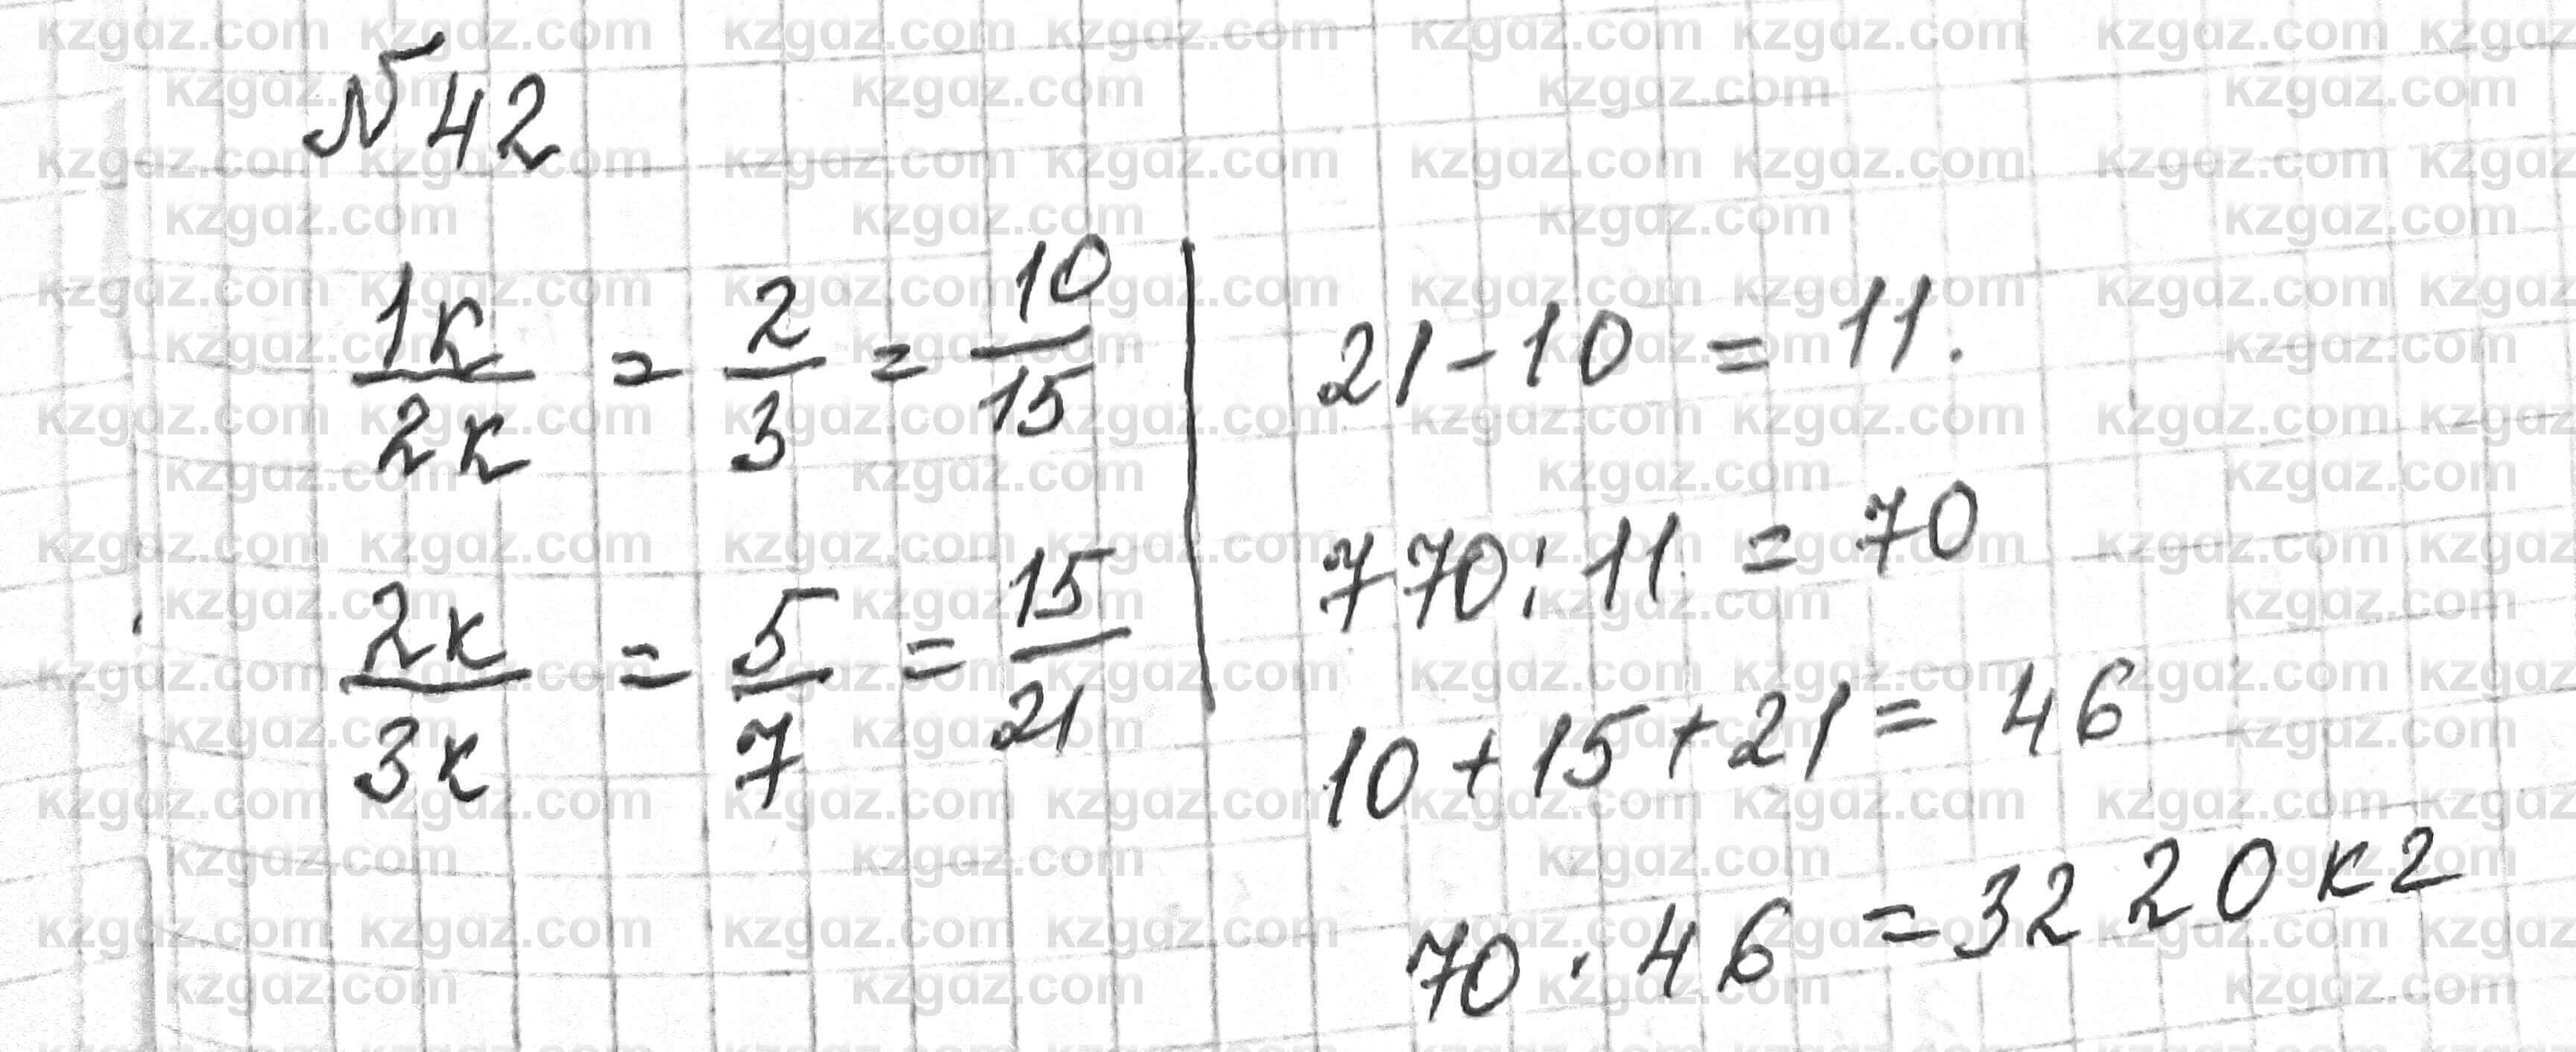 №42
1к/2к = 2/3 = 10/15
2к/3к = 5/7 = 15/21
21-10 = 11.
770:11 = 70
10+15+21= 46
70·46 =3220кг
kzgaz.com